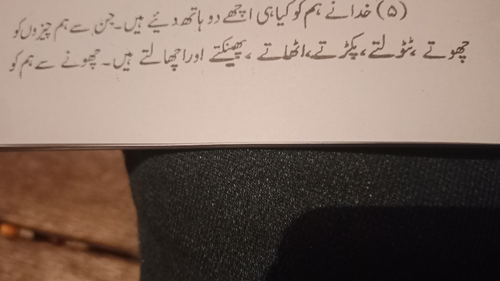 (۵) خدا نے ہم کو کیا ہی اچھے دو ہاتھ دئیے ہیں۔ جن سے ہم چیزوں کو
چھوتے ، ٹٹولتے ، پکڑتے، اٹھاتے ، پھینکتے اور اچھالتے ہیں۔ چھونے سے ہم کو